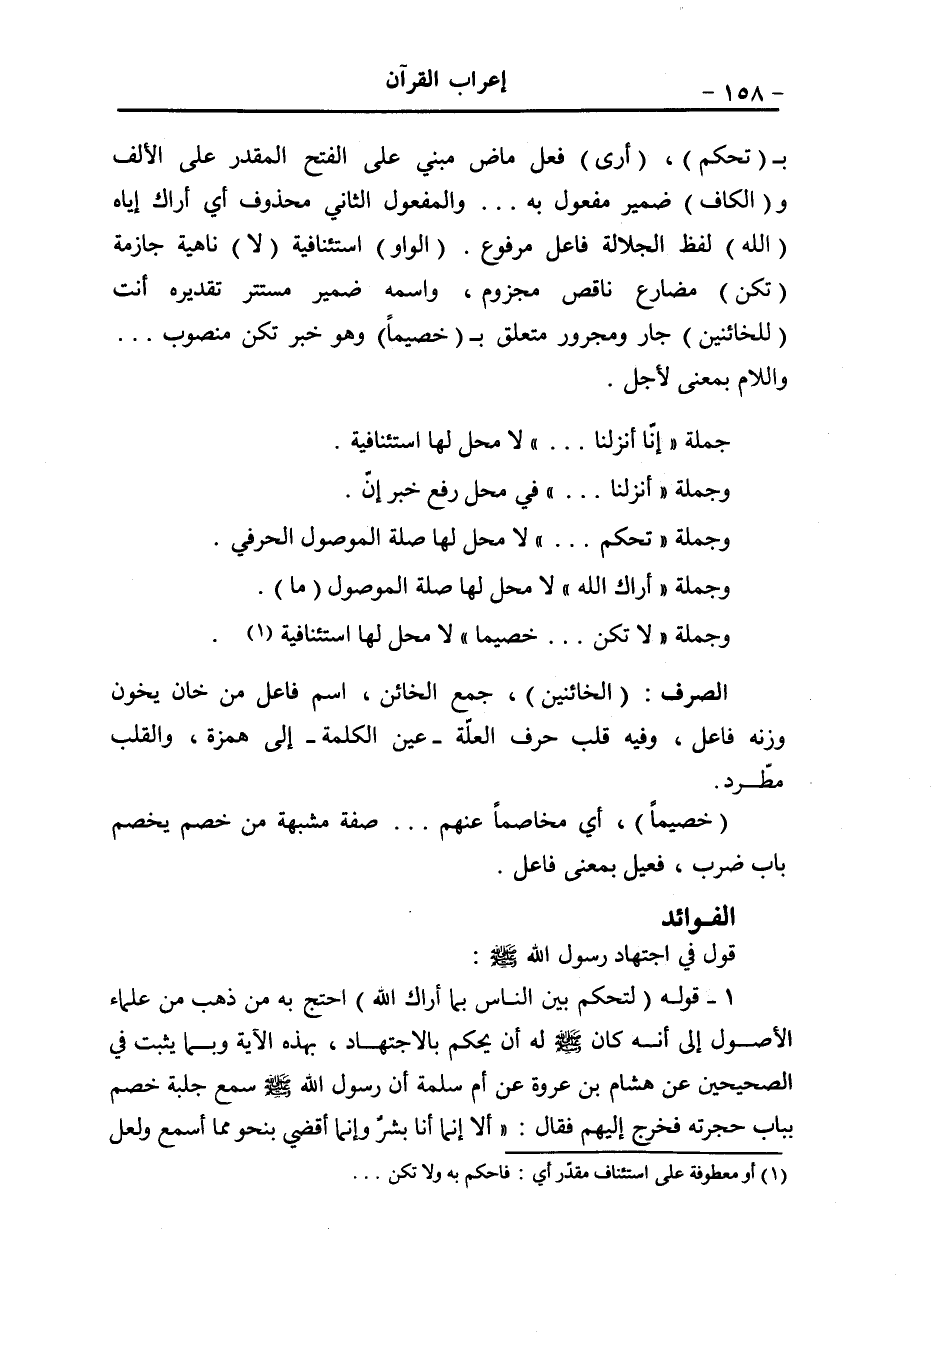 - ١٥٨ -
إعراب القرآن
بـ ( تحكم ) ، ( أرى ) فعل ماض مبني على الفتح المقدر على الألف
و ( الكاف ) ضمير مفعول به ... والمفعول الثاني محذوف أي أراك إياه
( الله ) لفظ الجلالة فاعل مرفوع . ( الواو ) استئنافية ( لا ) ناهية جازمة
( تكن ) مضارع ناقص مجزوم ، واسمه ضمير مستتر تقديره أنت
( للخائنين ) جار ومجرور متعلق بـ ( خصيماً ) وهو خبر تكن منصوب ...
واللام بمعنى لأجل .
جملة « إنّا أنزلنا ... » لا محل لها استئنافية .
وجملة « أنزلنا ... » في محل رفع خبر إنّ .
وجملة « تحكم ... » لا محل لها صلة الموصول الحرفي .
وجملة « أراك الله » لا محل لها صلة الموصول ( ما ) .
وجملة « لا تكن ... خصيما » لا محل لها استئنافية (١) .
الصرف : ( الخائنين ) ، جمع الخائن ، اسم فاعل من خان يخون
وزنه فاعل ، وفيه قلب حرف العلّة ـ عين الكلمة ـ إلى همزة ، والقلب
مطّـرد .
( خصيماً ) ، أي مخاصماً عنهم ... صفة مشبهة من خصم يخصم
باب ضرب ، فعيل بمعنى فاعل .
الفـوائد
قول في اجتهاد رسول الله ﷺ :
١ ـ قولـه ( لتحكم بين النـاس بما أراك الله ) احتج به من ذهب من علماء
الأصـول إلى أنـه كان ﷺ له أن يحكم بالاجتهـاد ، بهذه الآية وبـما يثبت في
الصحيحين عن هشام بن عروة عن أم سلمة أن رسول الله ﷺ سمع جلبة خصم
بباب حجرته فخرج إليهم فقال : « ألا إنما أنا بشرٌ وإنما أقضي بنحو مما أسمع ولعل
(١) أو معطوفة على استئناف مقدّر أي : فاحكم به ولا تكن ...